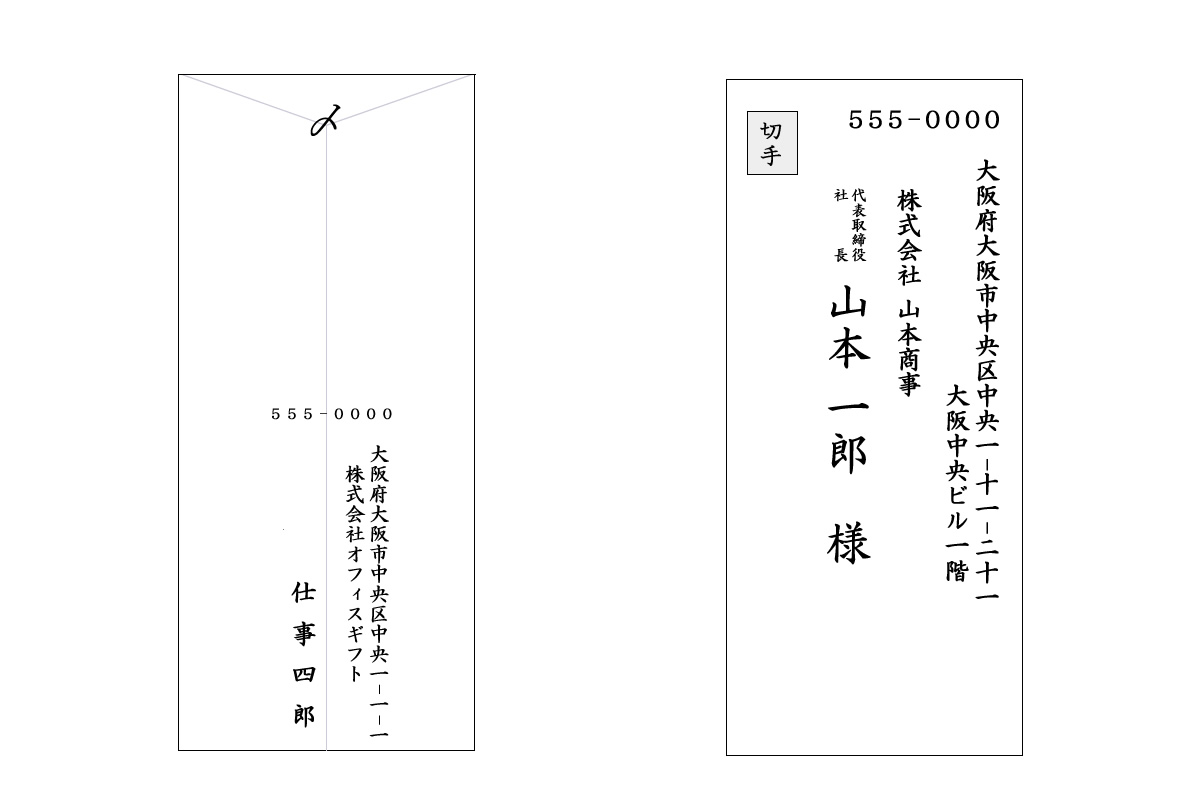 〆
555-0000
大阪府大阪市中央区中央一-一-一
株式会社オフィスギフト
仕事四郎
切手
555-0000
大阪府大阪市中央区中央一-十一-二十一
大阪中央ビル一階
株式会社 山本商事
代表取締役
社長
山本一郎 様